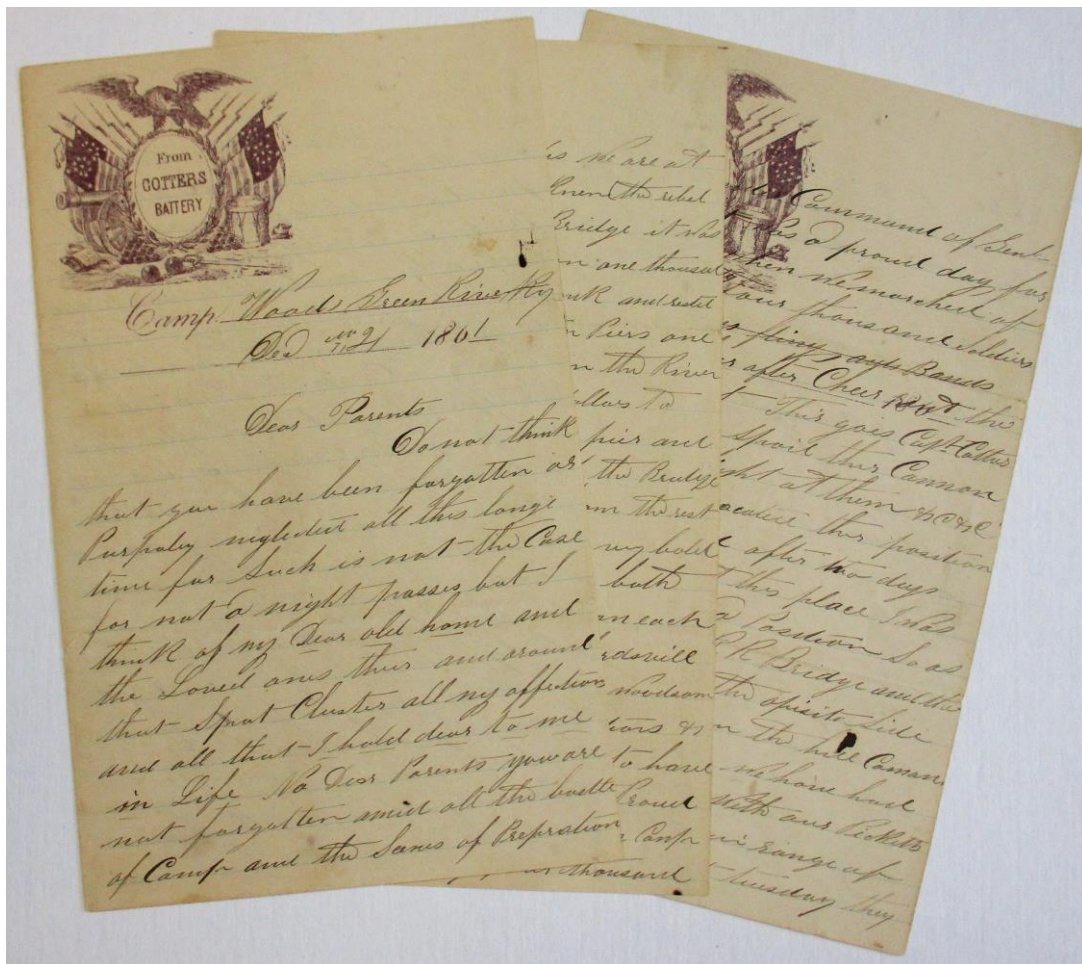 From
COTTERS
BATTERY
Camp Woods Green River Ky
Dec 21 1861
Dear Parents
Do not think
that you have been forgotten or
Purpaley neglected all this longe
time for Such is not the Case
for not a night passes but I
think of my Dear old home and
the Loved ones their and around
that Spout Cluster all my affections
and all that I hold dear to me
in Life No Dear Parents you are
not forgotten amid all the bustle
of Camp and the Scenes of Prepration
is we are at
the rebel
Bridge it was
one thousand
and
Piers one
the River
dollars to
pier and
the Bridge
the rest
my bold
both
each
Woodson
to have
Proud
Camp
thousand
Command of Genl
a proud day for
when we marched of
four thousand Soldiers
Bands
after Cheer rent the
This gois Capt. Cotters
Spoil this Cannon
at them &C &C
this position
after two days
this place I was
Position So as
R R Bridge and the
the opisite Side
the hill Coman
we have had
with our Picketts
in range of
tuesday they